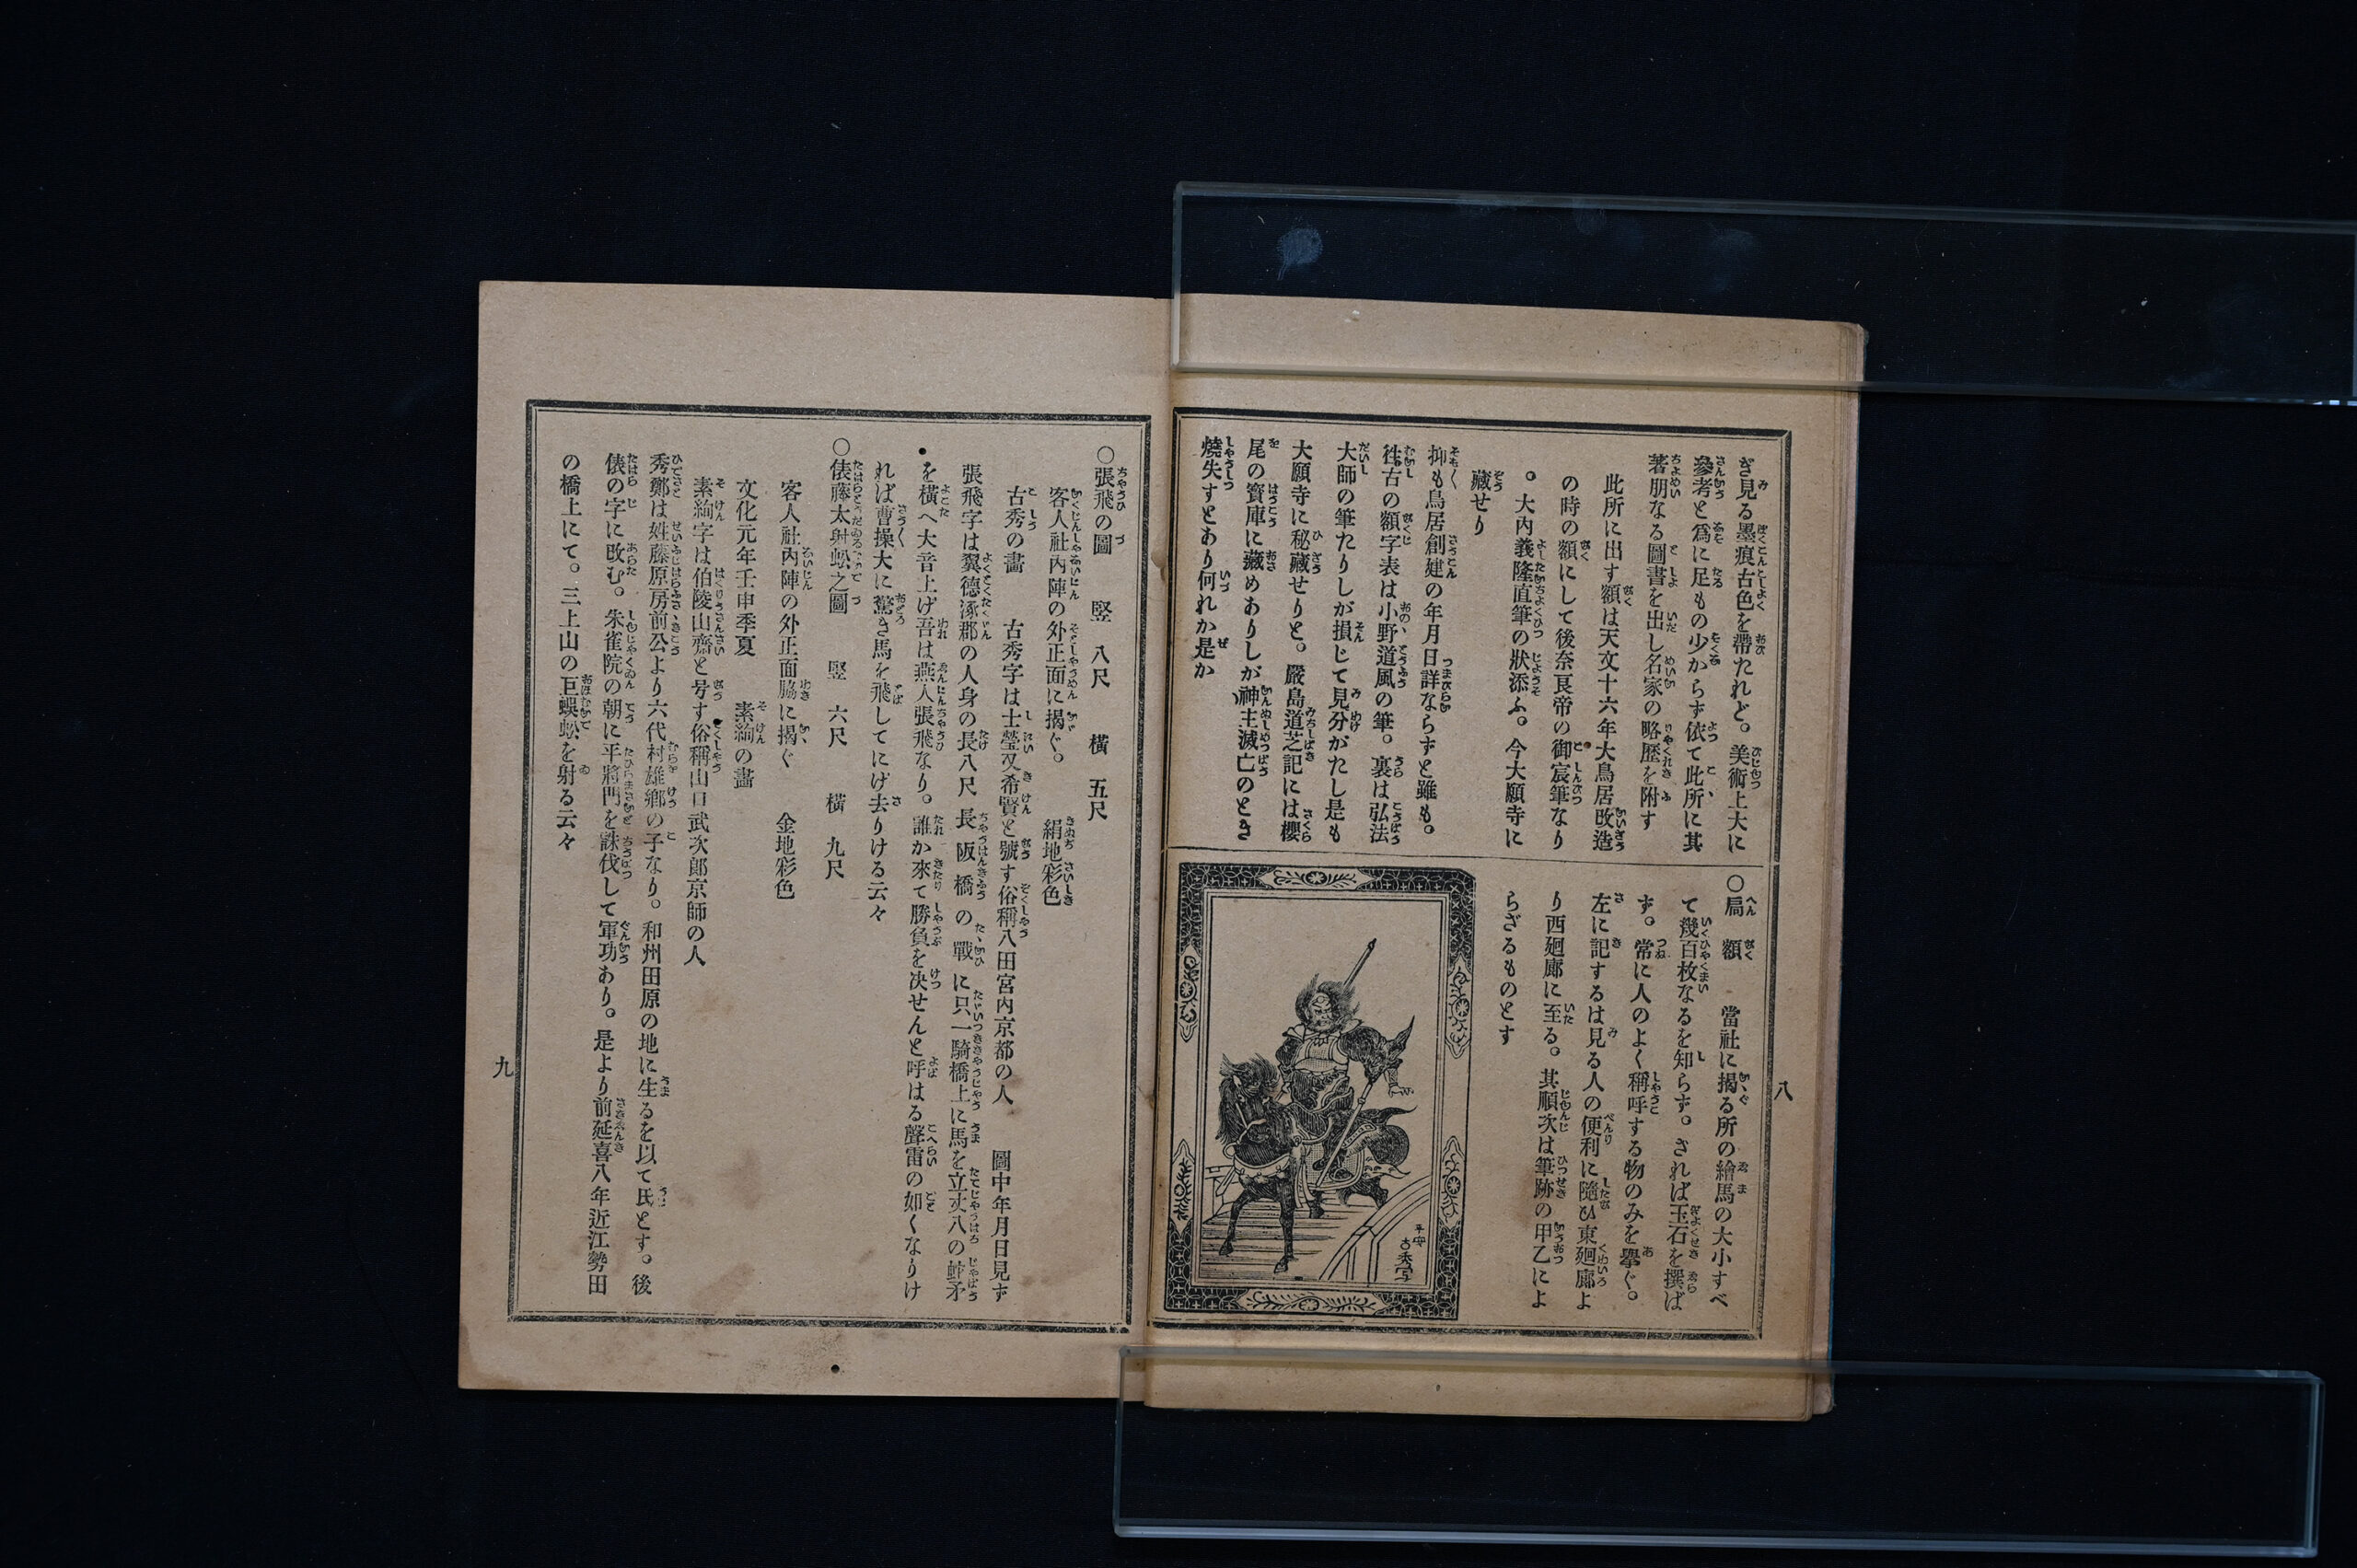 ぎ見る墨痕古色を帶たれど。美術上大に
參考と爲に足もの少からず依て此所に其
著朋なる圖書を出し名家の略歴を附す
此所に出す額は天文十六年大鳥居改造
の時の額にして後奈良帝の御宸筆なり
。大內義隆直筆の狀添ふ。今大願寺に
藏せり
抑も鳥居創建の年月日詳ならずと雖も。
徃古の額字表は小野道風の筆。裏は弘法
大師の筆たりしが損じて見分がたし是も
大願寺に秘藏せりと。嚴島道芝記には櫻
尾の寳庫に藏めありしが神主滅亡のとき
燒失すとあり何れか是か
○局額　當社に揭る所の繪馬の大小すべ
て幾百枚なるを知らず。されば玉石を撰ば
ず。常に人のよく稱呼する物のみを擧ぐ。
左に記するは見る人の便利に隨ひ東廻廊よ
り西廻廊に至る。其順次は筆跡の甲乙によ
らざるものとす
平安
古秀写
八
○張飛の圖　竪　八尺　橫　五尺
客人社內陣の外正面に揭ぐ。　絹地彩色
古秀の畵　古秀字は士瑩又希賢と號す俗稱八田宮內京都の人　圖中年月日見ず
張飛字は翼德涿郡の人身の長八尺長阪橋の戰に只一騎橋上に馬を立丈八の蛇矛
を橫へ大音上げ吾は燕人張飛なり。誰か來て勝負を决せんと呼はる聲雷の如くなりけ
れば曹操大に驚き馬を飛してにげ去りける云々
○俵藤太射蚣之圖　竪　六尺　橫　九尺
客人社內陣の外正面脇に揭ぐ　金地彩色
文化元年壬申季夏　素絢の畵
素絢字は伯陵山齋と号す俗稱山口武次郎京師の人
秀鄕は姓藤原房前公より六代村雄鄕の子なり。和州田原の地に生るを以て氏とす。後
俵の字に改む。朱雀院の朝に平將門を誅伐して軍功あり。是より前延喜八年近江勢田
の橋上にて。三上山の巨蜈蚣を射る云々
九